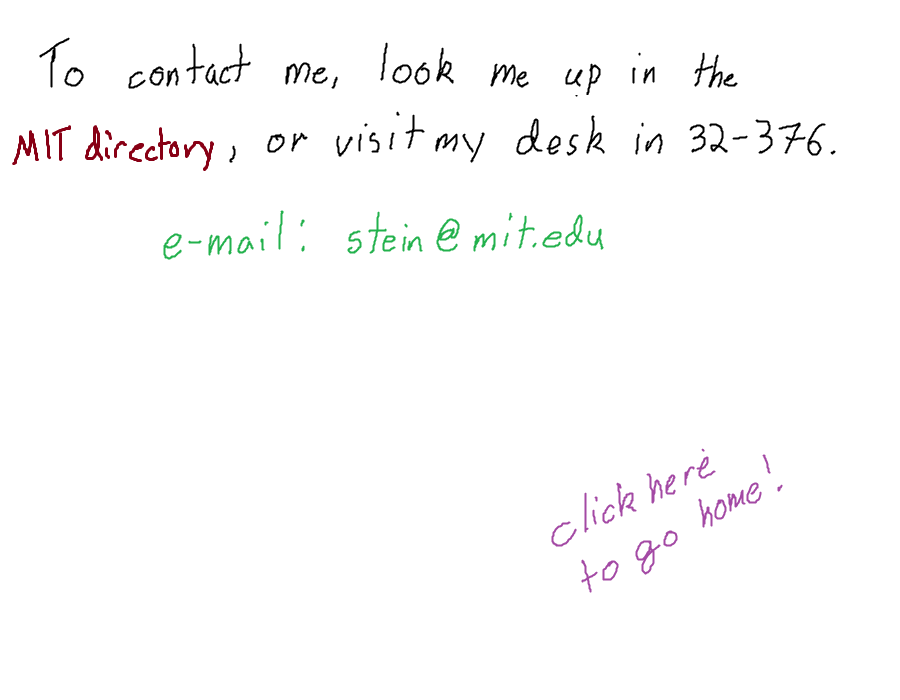 To contact me, look me up in the
MIT directory, or visit my desk in 32-376.
e-mail: stein@mit.edu
click here
to go home!